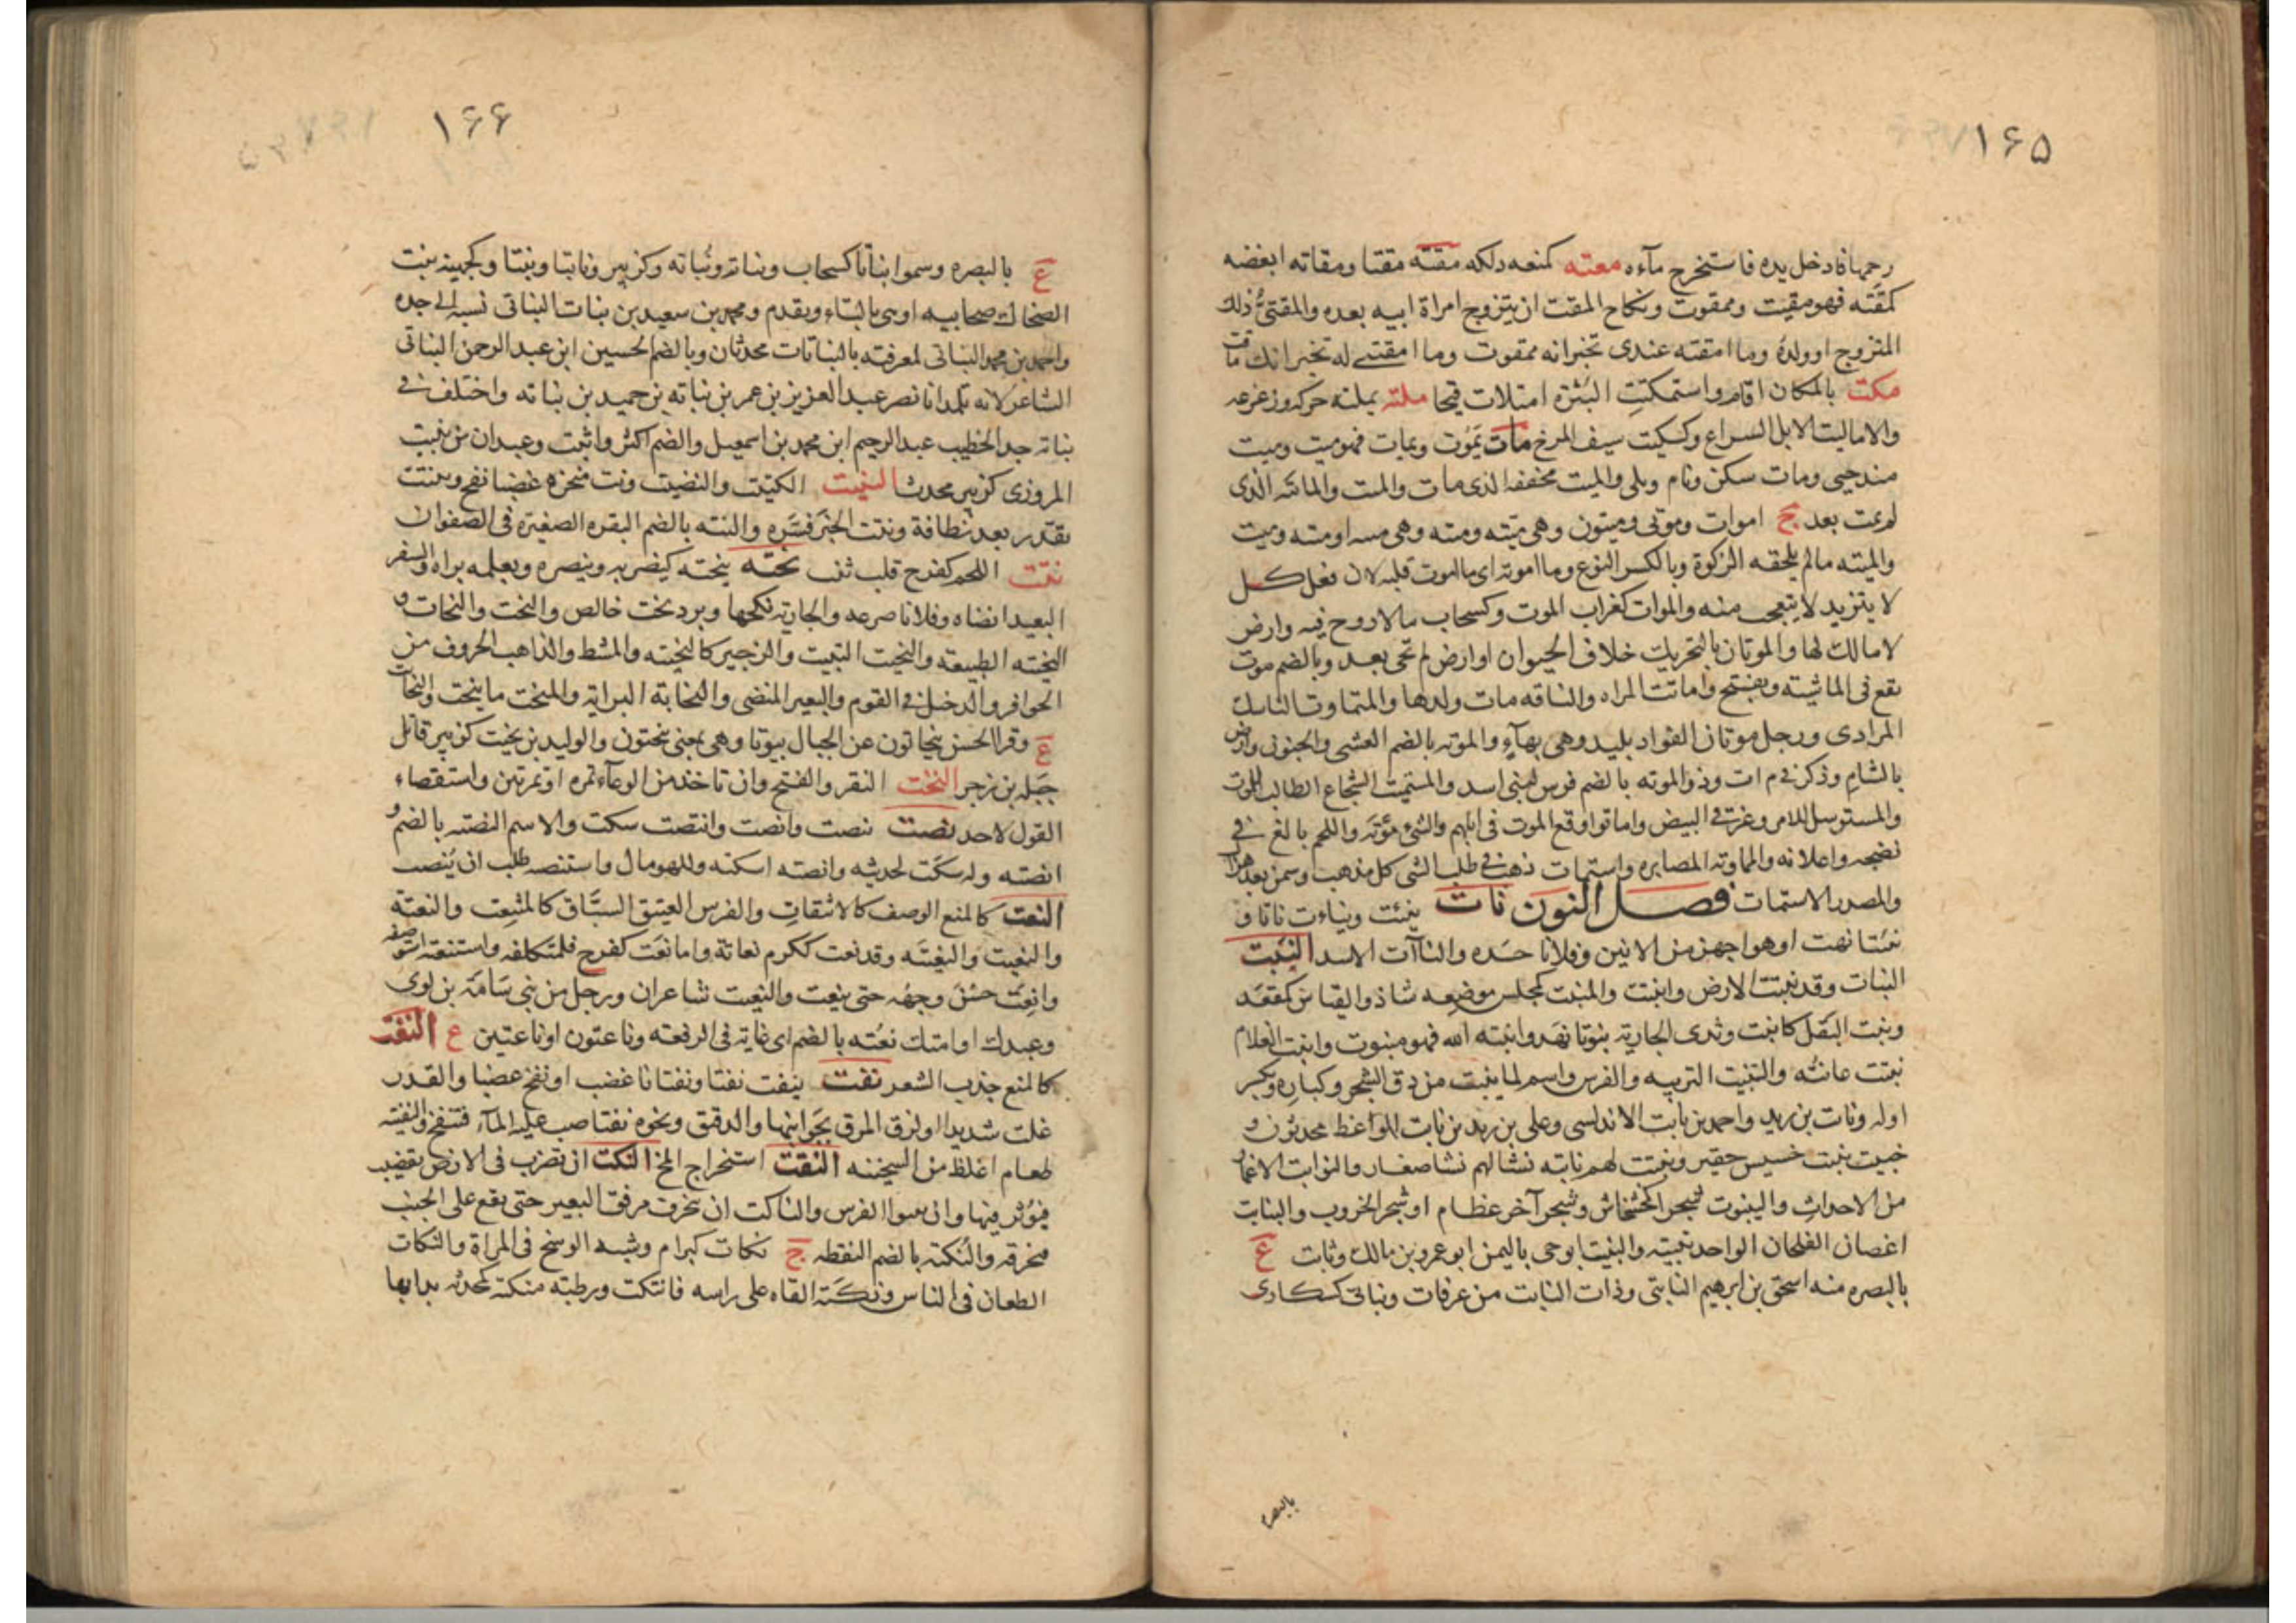 ١۶۵
رحمها فادخل يده فاستخرج مآءه معته كمنعه دلكه مقته مقتا ومقاته ابغضه
كمقته فهو مقيت وممقوت ونكاح المقت ان يتزوج امراة ابيه بعده والمقتى ذلك
المتزوج او ولده وما امقته عندى تخبر انه ممقوت وما امقتنى له تخبر انك ماقت
مكت بالمكان اقام واستمكتت البثرة امتلات قيحا ملته يملته حركه وزعزعه
والاماليت الابل السراع وكسكيت سيف المرخ مات يموت ويمات فهو ميت وميت
ضد حيى ومات سكن ونام وبلى والميت مخففه الذى مات والميت والمائت الذى
لم يمت بعد ج اموات وموتى وميتون وهى ميته وميته وهى اوميته وميت
والميته مالم يلحقه الزكوة وبالكسر النوع وما اموته اى ما اموت قلبه لان فعل كل
لا يتزيد لا يتعجب منه والموات كغراب الموت وكسحاب مالا روح فيه وارض
لا مالك لها والموتان بالتحريك خلاف الحيوان او ارض لم تحى بعد وبالضم موت
يقع فى الماشيته ويفتح واماتت المراه والناقه مات ولدها والمتماوت الناسك
المرادى ورجل موتان الفواد بليد وهى بهآء والموته بالضم الغشى والجنون وارض
بالشام وذكر فى م ات وذو الموته بالضم فرس لبنى اسد والمستميت الشجاع الطالب للموت
والمستوسل للامر وغرقى البيض واماتوا وقع الموت فى ابلهم والشئ موته واللحم بالغ فى
نضجه واغلانه والمماوته المصابره واستمات ذهب فى طلب الشى كل مذهب وسمن بعد هزال
والمصدر الاستمات فصل النون نات ينئت ويناءت ناتا و
نئتا نهت او هو اجهز من الانين وفلانا حسده والناآت الاسد النبت
النبات وقد نبتت الارض وانبتت والمنبت كمجلس موضعه شاذ والقياس كمقعد
ونبت البقل كانبت وثدى الجاريه نبوتا نهد وانبته الله فهو منبوت وانبت الغلام
نبتت عانته والتنبيت التربيه والغرس واسم لما ينبت من دق الشجر وكباره ويكسر
اوله ونابت بن يزيد واحمد بن نابت الاندلسى وعلى بن زيد بن نابت الواعظ محدثون و
خبيت نبيت خسيس حقير ونبتت لهم نابته نشالهم نشا صغار والنوابت الاغمار
من الاحداث والينبوت شجر الخشخاش وشجر آخر عظام او شجر الخروب والنبايت
اغصان الفلجان الواحد نبيته والنبيت ابوحى باليمن ابو عمرو بن مالك ونابت ع
بالبصره منه اسحق بن ابرهيم النابتى وذات النابت من عرفات ونباتى كسكارى
بالبصره
١۶۶
ع بالبصره وسموا نباتا كسحاب ونباته ونباته وكزبير ونابتا ونبتا وكجهينه بنت
الضحاك صحابيه او هى بالثاء ويقدم ومحمد بن سعيد بن نبات النباتى نسبه الى جده
واحمد بن محمد النباتى لمعرفته بالنباتات محدثان وبالضم الحسين ابن عبد الرحمن النباتى
الشاعر لانه تلمذ ابا نصر عبد العزيز بن عمر بن نباته بن حميد بن نباته واختلف فى
نباته جد الخطيب عبد الرحيم ابن محمد بن اسمعيل والضم اكثر واثبت وعبدان بن نبيت
المروزى كزبير محدث النتيت الكتيت والنضيت ونت منخره غضبا نفخ وتنتت
تقذر بعد نظافة ونتت الخبر فسره والنته بالضم النقره الصغيره فى الصفوان
نثت اللحم كفرح قلب ثنت نحته ينحته كيضربه وينصره ويعلمه براه والسفر
البعيد انضاه وفلانا صرعه والجاريه نكحها وبرد نحت خالص والنحت والنحات و
النحيته الطبيعه والنحيت التبيت والزحير كالنحيته والمشط والذاهب الحروف من
الحوافر والدخيل فى القوم والبعير المنضى والنحاتة البراية والمنحت ما ينحت والنحات
ع وقرا الحسن ينحاتون عن الجبال بيوتا وهى بمعنى ينحتون والوليد بن نحيت كزبير قاتل
جبله بن زحر النخت النقر والفتح وان تاخذ من الوعآء تمره او تمرتين واستقصاء
القول لاحد نصت ينصت وانصت وانتصت سكت والاسم النصته بالضم و
انصته وله سكت لحديثه وانصته اسكته وللهو مال واستنصه طلب ان ينصت
النعت كالمنع الوصف كالانتعات والفرس العتيق السباق كالمنتعت والنعته
والنعيت والنعيته وقد نعت ككرم نعاتة واما نعت كفرح فلمتكلفه واستنعته استوصفه
وانعت حسن وجهه حتى ينعت والنعيت شاعران ورجل من بنى سامة بن لوى
وعبدك او امتك نعته بالضم اى غايه فى الرفعه وناعتون او ناعتين ع النغت
كالمنع جذب الشعر نفت ينفت نفتا ونفتانا غضب او نفخ غضبا والقدر
غلت شديدا او لزق المرق بجوانبها والدقيق ونحوه نفتا صب عليه المآء فتنفخ والنفيته
طعام اغلظ من السخينه النقت استخراج المخ النكت ان تضرب فى الارض بقضيب
فيؤثر فيها وان ينبوا الفرس والناكت ان يحرف مرفق البعير حتى يقع على الجنب
فيحرقه والنكته بالضم النقطه ج نكات كبرام وشبه الوسخ فى المراة والنكات
الطعان فى الناس ونكته القاه على راسه فانتكت ورطبته منكته كمحدثه بدا بها